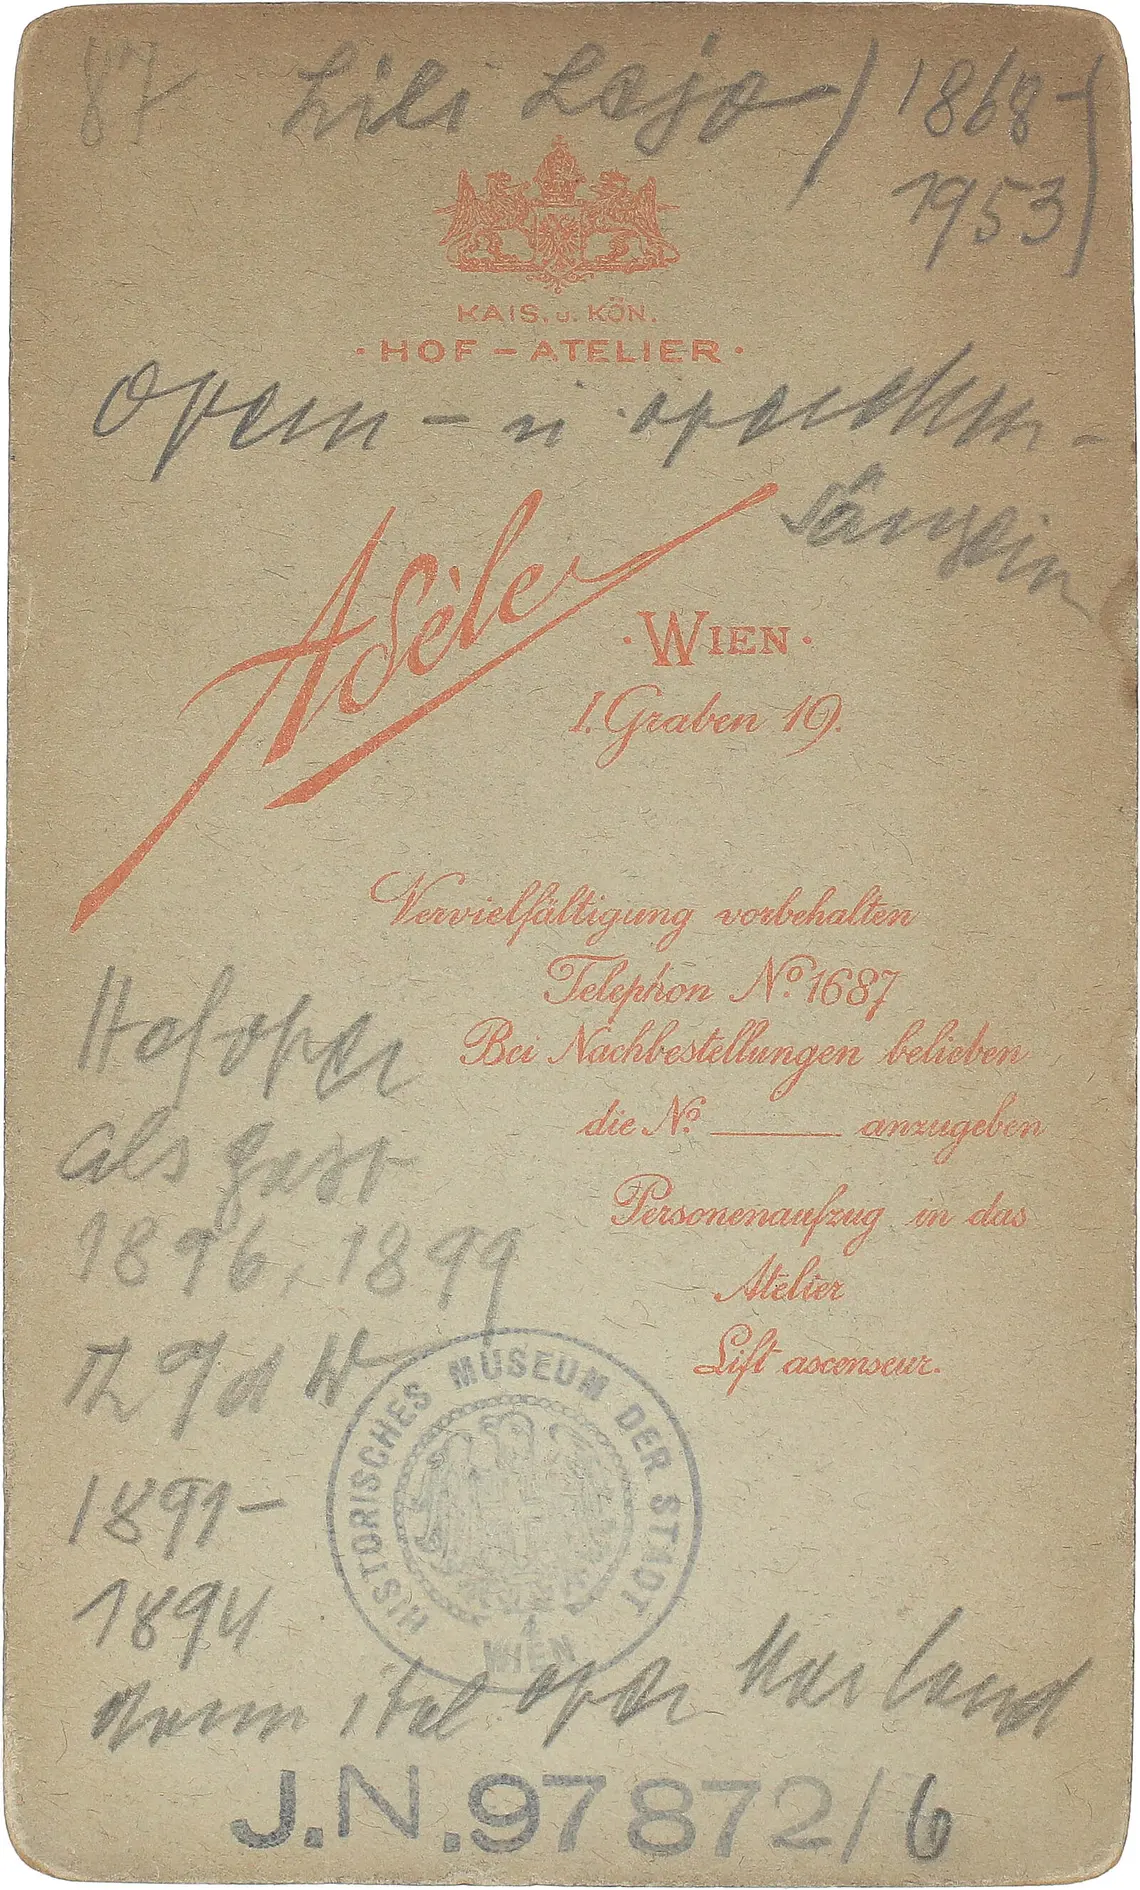 87 Lili Lejo / 1868-
1953)
KAIS. u. KÖN.
· HOF – ATELIER ·
Opern - u operetten -
Sängerin
Adèle
· WIEN ·
I. Graben 19.
Vervielfältigung vorbehalten
Telephon No. 1687
Bei Nachbestellungen belieben
die No. ______ anzugeben
Personenaufzug in das
Atelier
Lift ascenseur.
Hofoper
als Gast
1896, 1899
Th a d W
1891-
1894
dann ital oper Mailand
HISTORISCHES MUSEUM DER STADT
WIEN
J.N. 97872/6